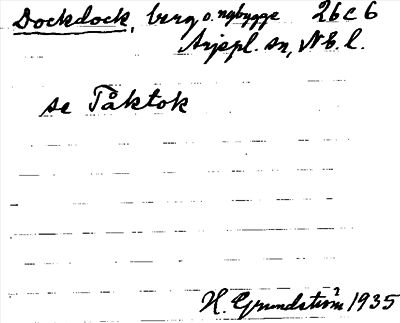 Dockdock, berg o. nybygge 26 C 6
Arjepl. sn, Nb. l.
se Tåktok
H. Grundström 1935